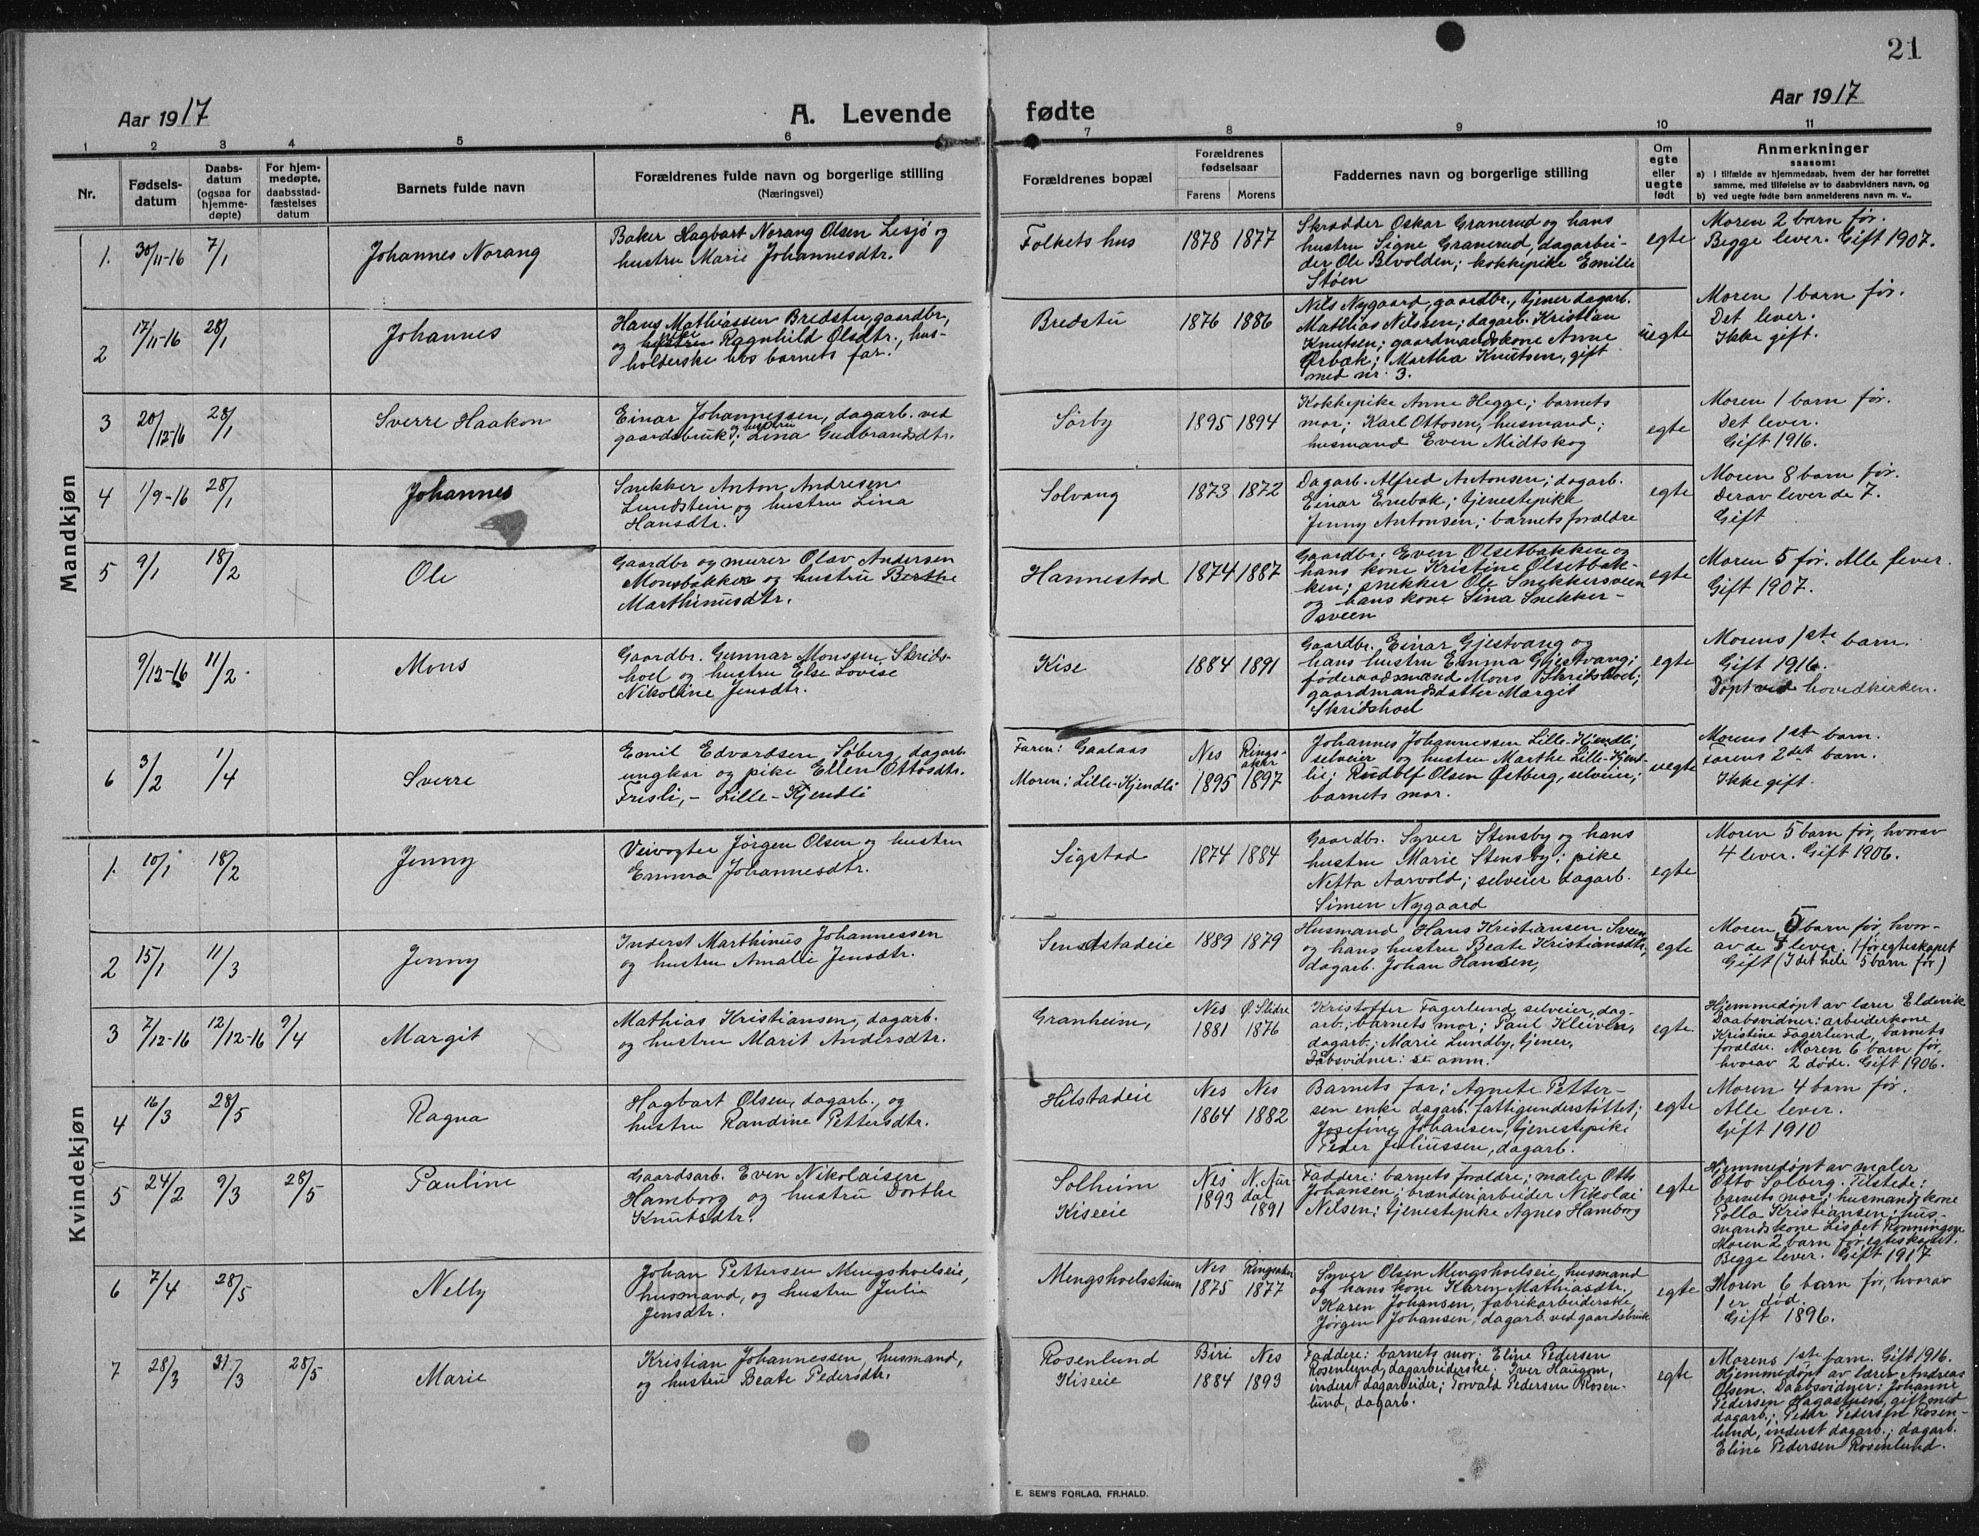 21
Aar 1917
A. Levende fødte
Aar 1917
1 2 3 4 5 6 7 8 9 10 11
Nr.
Fødsels-
datum
Daabs-
datum
(ogsaa for
hjemme-
døpte)
For hjem-
medøpte,
daabsstad-
fæstelses
datum
Barnets fulde navn
Forældrenes fulde navn og borgerlige stilling
(Næringsvei)
Forældrenes bopæl
Forældrenes
fødselsaar
Farens Morens
Faddernes navn og borgerlige stilling
Om
egte
eller
uegte
født
Anmerkninger
saasom:
a) i tilfælde av hjemmedaab, hvem der har forrettet
samme, med tilføielse av to daabsvidners navn, og
b) ved uegte fødte barn anmelderens navn m. v..
Mandkjøn
1. 30/11-16 7/1
Johannes Norang
Baker Hagbart Norang Olsen Lesjø og
hustru Marie Johannesdtr.
Folkets hus
1878 1877
Skrædder Oskar Granerud og hans
hustru Signe Granerud, dagarbei-
der Ole Bevolden; kokkepike Emilie
Støen
egte
Moren 2 barn før.
Begge lever. Gift 1907.
2 17/11-16 28/1
Johannes
Hans Mathiassen Bredstu, gaardbr.,
og Ragnhild Olsdtr., hus-
holderske hos barnets far.
Bredstu
1876 1886
Nils Nygaard, gaardbr., tjener dagarb.
Mathias Nilssen; dagarb. Kristian
Knutsen; gaardmandskone Anne
Ørbæk; Martha Knutsen, gift
med nr. 3.
uegte
Moren 1 barn før.
Det lever.
Ikke gift.
3 20/12-16 28/1
Sverre Haakon
Einar Johannessen, dagarb. ved
gaardsbruk; og hustru Lina Gudbrandsdtr.
Sørby
1895 1894
Kokkepike Anne Hegge; barnets
mor; Karl Ottosen, husmand;
husmand Even Midtskog
egte
Moren 1 barn før.
Det lever.
Gift 1916.
4 1/9-16 28/1
Johannes
Snekker Anton Andresen
Lundstein og hustru Lina
Hansdtr.
Solvang
1873 1872
Dagarb. Alfred Antonsen; dagarb.
Einar Enebak; tjenestepike
Jenny Antonsen; barnets forældre
egte
Moren 8 barn før.
Derav lever de 7.
Gift
5 9/1 18/2
Ole
Gaardbr og murer Olav Andersen
Monsbakken og hustru Berthe
Marthinusdtr.
Hannestad
1874 1887
Gaardbr. Even Olsetbakken og
hans kone Kristine Olsetbak-
ken; snekker Ole Snekkersveen
og hans kone Lina Snekker-
sveen
egte
Moren 5 før. Alle lever.
Gift 1907.
9/12-16 11/2
Mons
Gaardbr. Gunnar Monssen Skrids-
hoel og hustru Else Lovise
Nikoline Jensdtr.
Kise
1884 1891
Gaardbr. Einar Gjestvang og
hans hustru Emma Gjestvang;
føderaadsmand Mons Skridshoel;
gaardmandsdatter Margit
Skridshoel
egte
Morens 1ste barn.
Gift 1916.
Døpt ved hovedkirken.
6 3/2 1/4
Sverre
Emil Edvardsen Søberg, dagarb.
ungkar og pike Ellen Ottosdtr.
Frisli, - Lille-Kjendli
Faren: Gaalaas
Moren: Lille-Kjendli
Nes
1895
Rings-
aker
1897
Johannes Johannessen Lille-Kjendli,
selveier og hustru Marthe Lille-Kjend-
lie; Rudolf Olsen Østberg, selveier;
barnets mor.
uegte
Morens 1ste barn.
Farens 2det barn.
Ikke gift.
Kvindekjøn
1. 10/1 18/2
Jenny
Veivogter Jørgen Olsen og hustru
Emma Johannesdtr.
Sigstad
1874 1884
Gaardbr. Syver Stensby og hans
hustru Marie Stensby; pike
Netta Aarvold; selveier dagarb.
Simen Nygaard
egte
Moren 5 barn før, hvorav
4 lever. Gift 1906.
2 15/1 11/3
Jenny
Inderst Marthinus Johannessen
og hustru Amalie Jensdtr.
Sendstadeie
1889 1879
Husmand Hans Kristiansen Sveen
og hans hustru Beate Kristiansdtr,
dagarb. Johan Hansen,
egte
Moren 5 barn før, hvor-
av de 4 lever. 1 før egteskapet
Gift (I det hele 5 barn før)
3 7/12-16 12/12-16 9/4
Margit
Mathias Kristiansen, dagarb.
og hustru Marit Andersdtr.
Granheim,
Nes
1881
Ø Slidre
1876
Kristoffer Fagerlund selveier, dag-
arb.; barnets mor; Paul Kleiven,
dagarb.; Marie Lundby, tjener,
Daabsvidner: se anm.
egte.
Hjemmedøpt av lærer Eldevik
Daabsvidner: arbeiderkone
Kristine Fagerlund, barnets
forældre. Moren 6 barn før,
hvorav 2 døde. Gift 1906.
4 16/3 28/5
Ragna
Hagbart Olsen, dagarb., og
hustru Randine Pettersdtr.
Hilstadeie
Nes
1864
Nes
1882
Barnets far; Agnete Petter-
sen enke dagarb. fattigunderstøttet;
Josefine Johansen, tjenestepike
Peder Juliussen, dagarb.
egte
Moren 4 barn før.
Alle lever.
Gift 1910
5 24/2 9/3 28/5
Pauline
Gaardsarb. Even Nikolaisen
Hamborg og hustru Dorthe
Knutsdtr.
Solheim
Kiseeie
Nes
1893
N. Aur
dal
1891
Faddere: barnets forældre; maler Otto
Johansen; brænderiarbeider Nikolai
Nilsen; tjenestepike Agnes Hamborg
egte
Hjemmedøpt av maler
Otto Solberg. Tilstede:
barnets mor; husmandskone
Polla Kristiansen; hus-
mandskone Lisbet Rønningen
Moren 2 barn før egteskapet.
Begge lever. Gift 1917
6 7/4 28/5
Nelly
Johan Pettersen Mengshoelseie,
husmand, og hustru Julie
Jensdtr.
Mengshoelsstuen
Nes
1875
Ringsaker
1877
Syver Olsen Mengshoelseie, husmand
og hans kone Karen Mathiasdtr.,
Karen Johansen, fabrikarbeiderske,
Jørgen Johansen, dagarb. ved gaardsbruk
egte
Moren 6 barn før, hvorav
1 er død.
Gift 1896.
7 28/3 31/3 28/5
Marie
Kristian Johannessen, husmand,
og hustru Beate Pedersdtr.
Rosenlund
Kiseeie
Biri
1884
Nes
1893
Faddere: barnets mor; Eline Pedersen
Rosenlund, dagarbeiderske. Iver Haugom,
inderst dagarbeider; Torvald Pedersen Rosen-
lund, dagarb.
egte
Morens 1st barn. Gift 1916.
Hjemmedøpt av lærer Andreas
Olsen. Daabsvidner: Johanne
Pedersen Hagastuen, gift med
dagarb.; Peder Pedersen Rosen-
lund, inderst dagarb.; dagarb.
Eline Pedersen Rosenlund.
E. SEM'S FORLAG, FR.HALD.